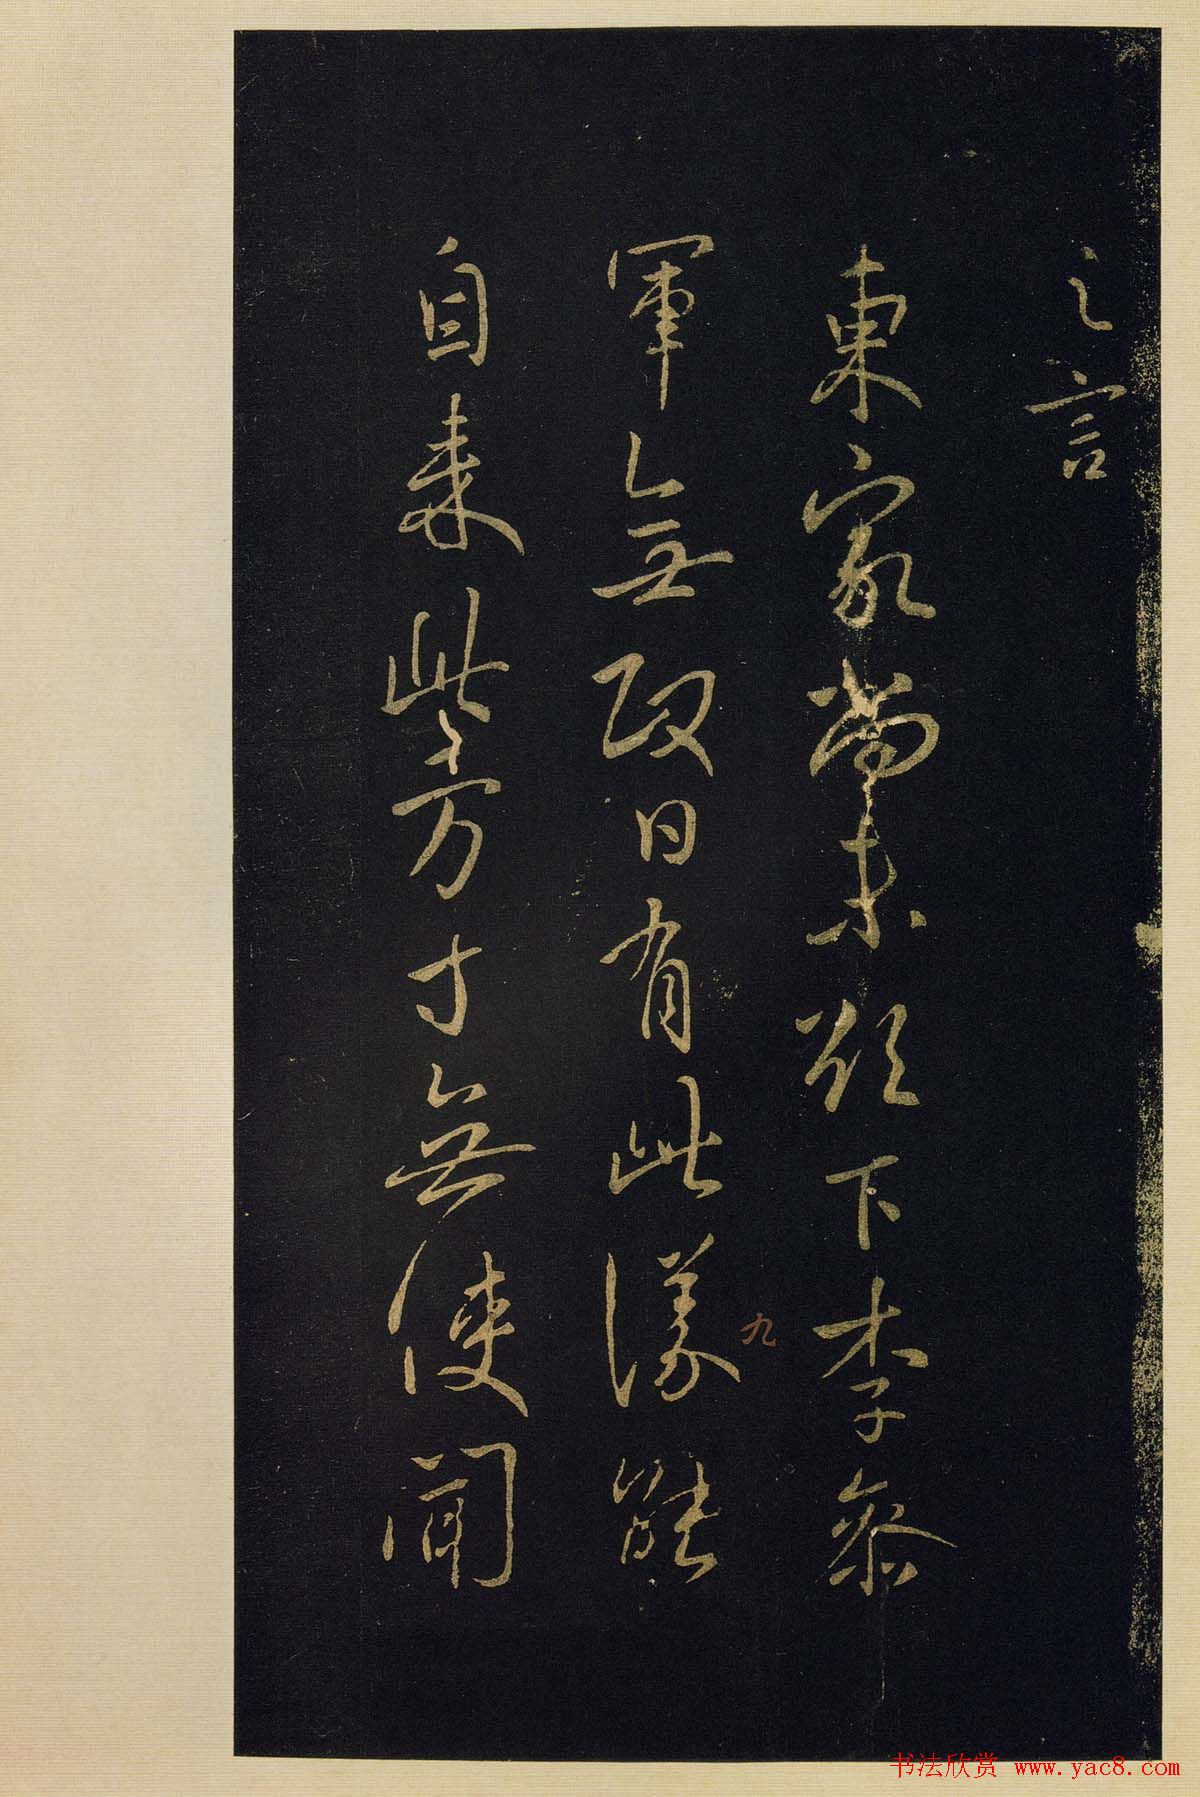 之言
東家當未歇下李參
軍無改日有此儀能
自來此方寸無使聞
九
书法欣赏 www.yac8.com